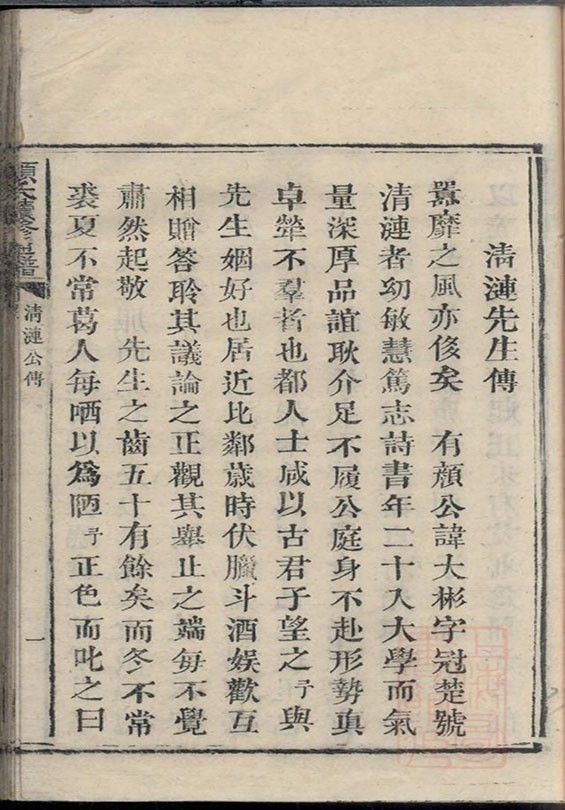 清漣先生傳
囂靡之風亦侈矣 有顏公諱大彬字冠楚號
清漣者㓜敏慧篤志詩書年二十入大學而氣
量深厚品誼耿介足不履公庭身不赴形勢真
卓犖不羣者也都人士咸以古君子望之予與
先生姻好也居近比鄰歲時伏臘斗酒娛歡互
相贈答聆其議論之正觀其舉止之端每不覺
肅然起敬 先生之齒五十有餘矣而冬不常
裘夏不常葛人每哂以爲陋予正色而叱之曰
顏氏續修族譜
清漣公傳
一